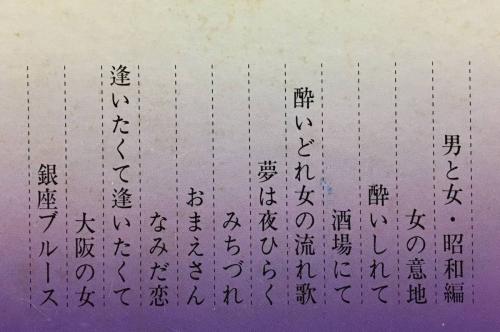 男と女・昭和編
女の意地
酔いしれて
酒場にて
酔いどれ女の流れ歌
夢は夜ひらく
みちづれ
おまえさん
なみだ恋
逢いたくて逢いたくて
大阪の女
銀座ブルース